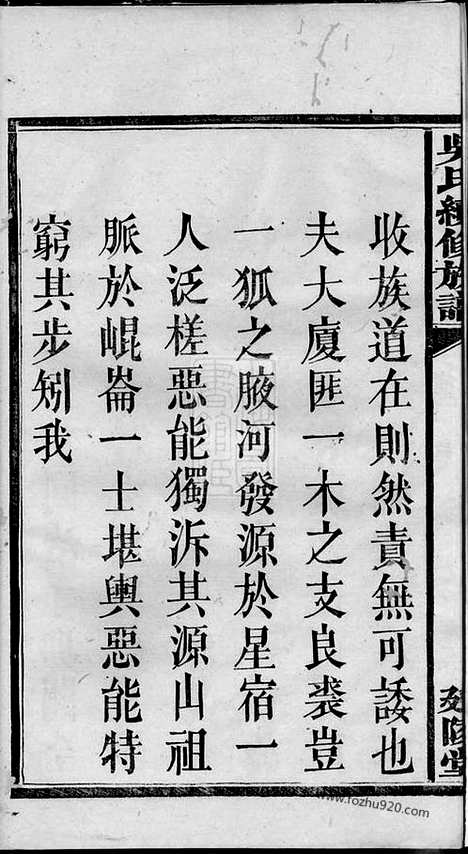 吳氏續修族譜
延陵堂
收族道在則然責無可諉也
夫大廈匪一木之支良裘豈
一狐之腋河發源於星宿一
人泛槎惡能獨泝其源山祖
脈於崐崙一士堪輿惡能特
窮其步矧我
www.fozhu920.com